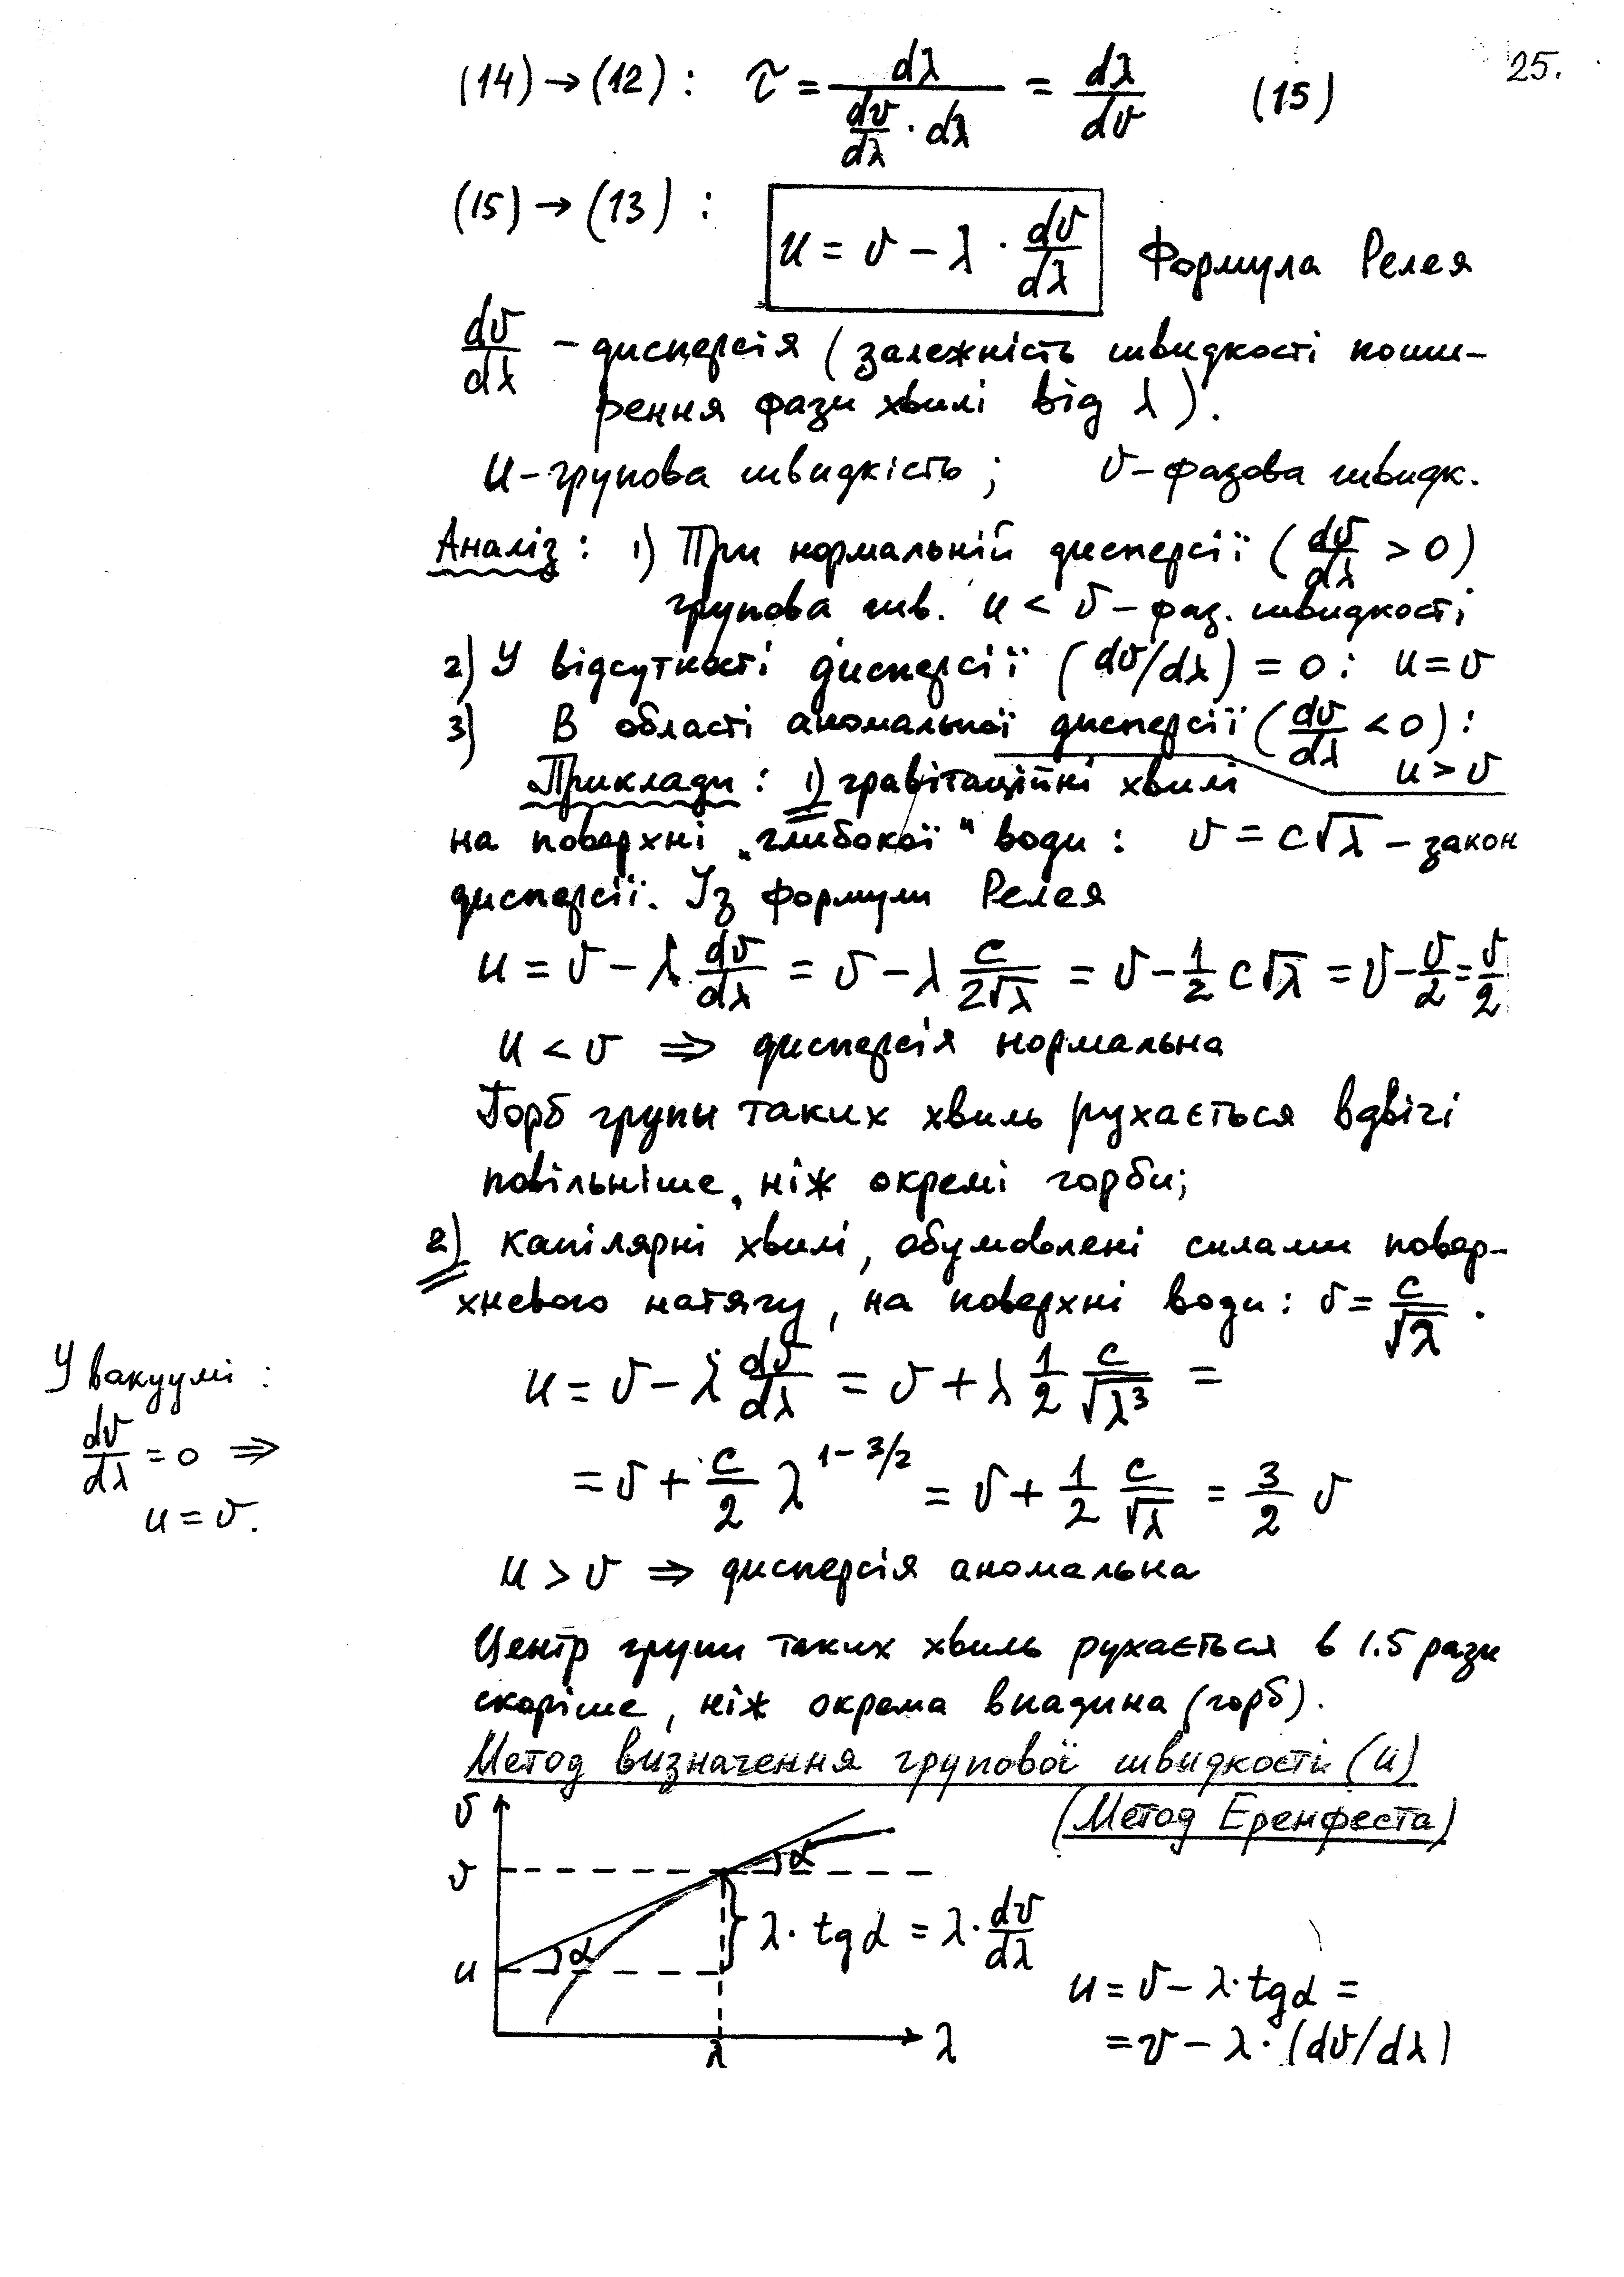 25.
(14) → (12) : τ = dλ / (dv/dλ · dλ) = dλ/dv (15)
(15) → (13) : u = v − λ · dv/dλ Формула Релея
dv/dλ – дисперсія (залежність швидкості поши-
рення фази хвилі від λ).
u – групова швидкість ; v – фазова швидк.
Аналіз : 1) При нормальній дисперсії (dv/dλ > 0)
групова шв. u < v – фаз. швидкості
2) У відсутності дисперсії (dv/dλ) = 0 : u = v
3) В області аномальної дисперсії (dv/dλ < 0) :
u > v
Приклади : 1) гравітаційні хвилі
на поверхні „глибокої" води : v = c√λ – закон
дисперсії. Із формули Релея
u = v − λ dv/dλ = v − λ c/(2√λ) = v − 1/2 c√λ = v − v/2 = v/2
u < v ⇒ дисперсія нормальна
Горб групи таких хвиль рухається вдвічі
повільніше, ніж окремі горби;
2) капілярні хвилі, обумовлені силами повер-
хневого натягу, на поверхні води : v = c/√λ .
u = v − λ dv/dλ = v + λ 1/2 c/√λ³ =
= v + c/2 λ^(1−3/2) = v + 1/2 c/√λ = 3/2 v
У вакуумі :
dv/dλ = 0 ⇒
u = v.
u > v ⇒ дисперсія аномальна
Центр групи таких хвиль рухається в 1.5 рази
скоріше, ніж окрема впадина (горб).
Метод визначення групової швидкості (u)
(Метод Еренфеста)
v
v
α
λ · tg α = λ · dv/dλ
u
α
λ
λ
u = v − λ · tg α =
= v − λ · (dv/dλ)